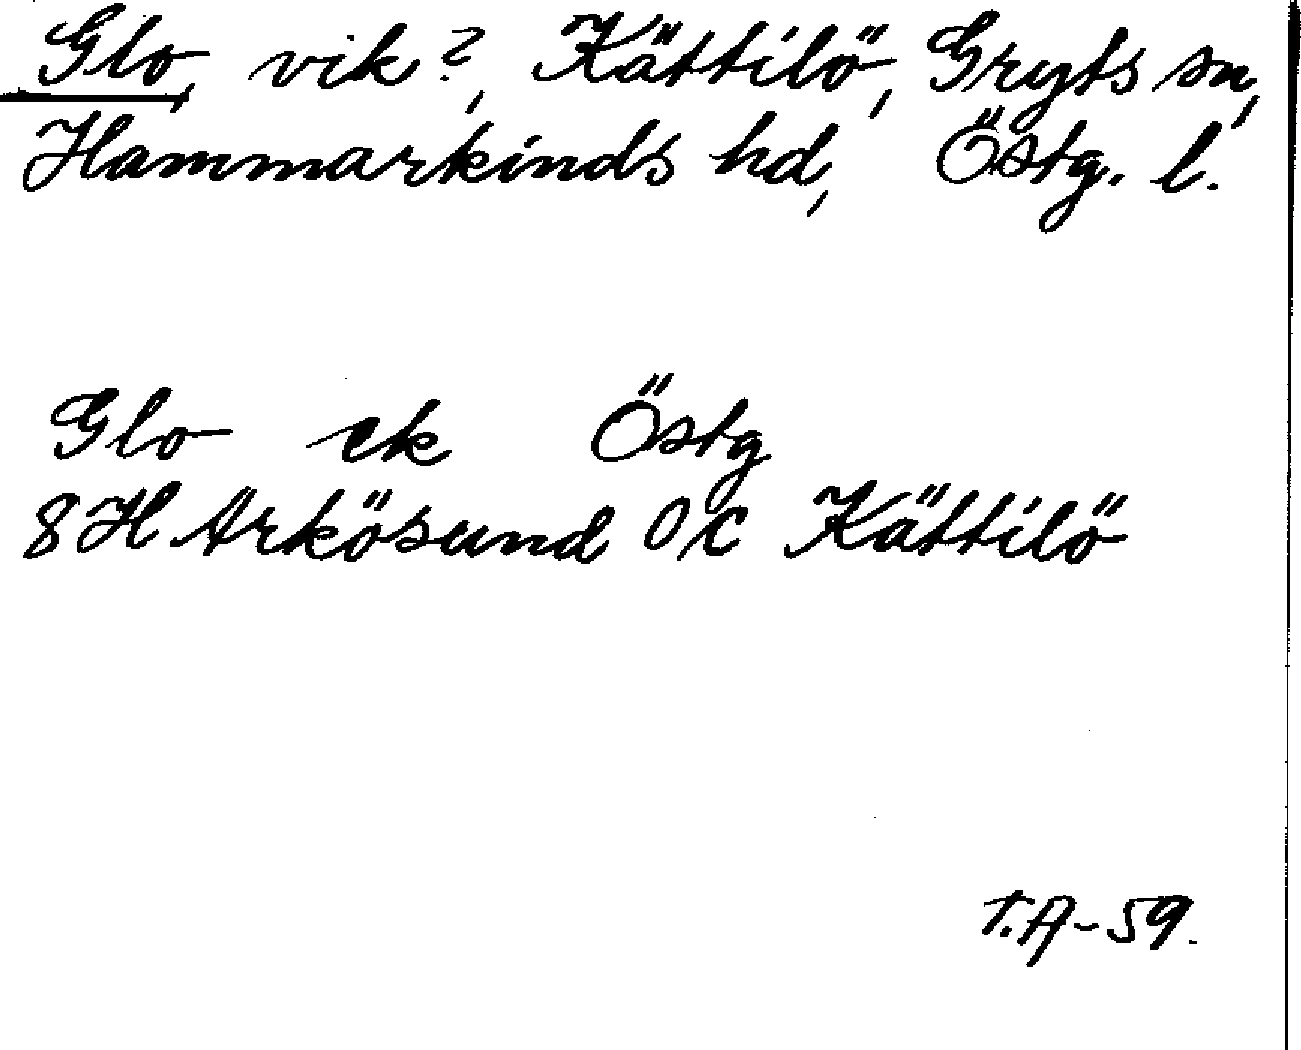 Glo, vik?, Kättilö, Gryts sn,
Hammarkinds hd, Östg. l.
Glo ek Östg
8H Arkösund O/C Kättilö
T.A-59.